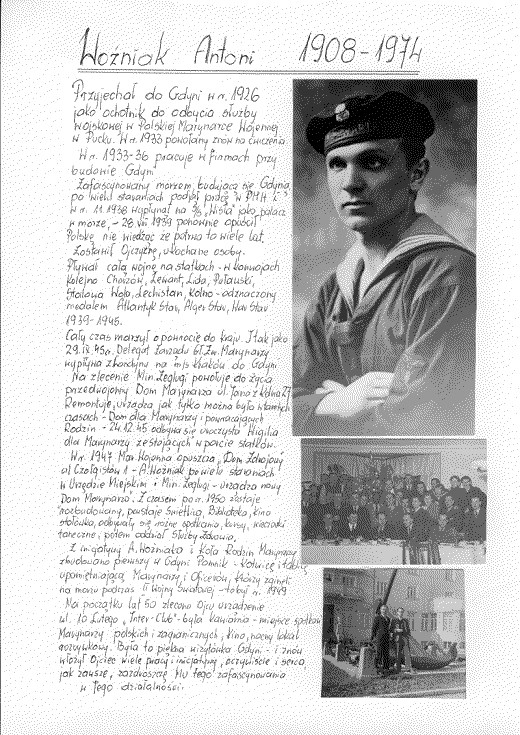 Woźniak Antoni 1908-1974
Przyjechał do Gdyni w r. 1926
jako ochotnik do odbycia służby
wojskowej w Polskiej Marynarce Wojennej
w Pucku. W r. 1933 powołany znów na ćwiczenia.
W r. 1933-36 pracuje w firmach przy
budowie Gdyni.
Zafascynowany morzem, budującą się Gdynią,
po wielu staraniach podjął pracę w PMH i
w r. 11.1938 wypłynął na s/s "Wisła" jako palacz
w morze, - 28 VIII 1939 ponownie opuścił
Polskę nie wiedząc że potrwa to wiele lat.
Zostawił Ojczyznę, ukochane osoby.
Pływał całą wojnę na statkach - w konwojach
kolejno Chorzów, Lewant, Lida, Pułaski,
Stalowa Wola, Lechistan, Kolno - odznaczony
medalem Atlantyk Star, Algier Star, War Star
1939-1945.
Cały czas marzył o powrocie do kraju. I tak jako
29.IX.45r. Delegat Zarządu Gł. Zw. Marynarzy
wypływa z Londynu na m/s Kraków do Gdyni
Na zlecenie Min. Żeglugi powołuje do życia
przedwojenny Dom Marynarza ul. Jana z Kolna 27
Remontuje, urządza jak tylko można było w tamtych
czasach - Dom dla Marynarzy i powracających
Rodzin - 24.12.45 odbywa się uroczysta Wigilia
dla Marynarzy zestojących w porcie statków.
W r. 1947 Mar. Wojenna opuszcza "Dom Zdrojowy"
ul. Czołgistów 1 - A. Woźniak po wielu staraniach
w Urzędzie Miejskim i Min. Żeglugi - urządza nowy
"Dom Marynarza". Z czasem po r. 1950 zostaje
rozbudowany, powstaje Świetlica, Biblioteka, kino
stołówka, odbywały się różne spotkania, kursy, wieczorki
taneczne, potem oddział Służby Zdrowia.
Z inicjatywy A. Woźniaka i Koła Rodzin Marynarzy
zbudowano pierwszy w Gdyni Pomnik - Kotwicę i tablicę
upamiętniającą Marynarzy i Oficerów, którzy zginęli
na morzu podczas II Wojny Światowej - to był r. 1949
Na początku lat 50 zlecono Ojcu urządzenie
ul. 10 Lutego "Inter-Club" - była kawiarnia - miejsce spotkań
Marynarzy polskich i zagranicznych, kino, nocny lokal
rozrywkowy. Była to piękna wizytówka Gdyni - i znów
włożył Ojciec wiele pracy i inicjatywy, oczywiście i serca,
jak zawsze, zazdroszczę Mu tego zafascynowania
w Tego działalności.